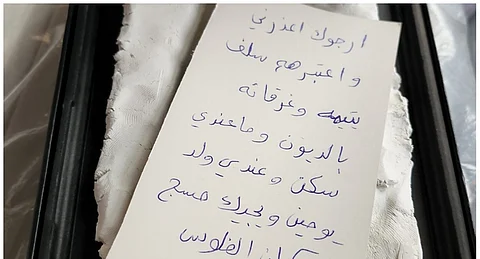 ارجوك اعذرني
واعتبرهه سلف
يتيمه وغرقانه
بالديون وماعندي
سكن وعندي ولد
يومين ويجيك مسج
الفلوس